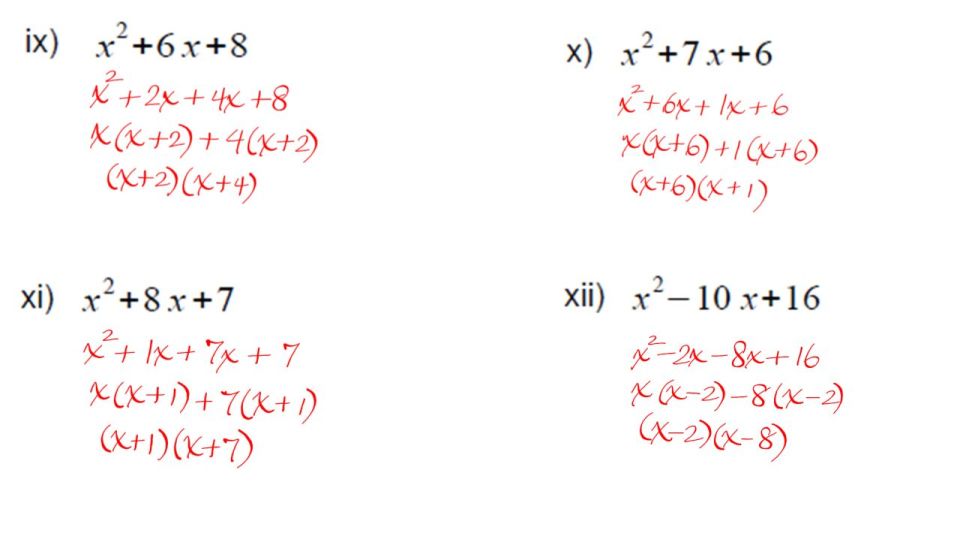 ix) x²+6x+8
x²+2x+4x+8
x(x+2)+4(x+2)
(x+2)(x+4)
x) x²+7x+6
x²+6x+1x+6
x(x+6)+1(x+6)
(x+6)(x+1)
xi) x²+8x+7
x²+1x+7x+7
x(x+1)+7(x+1)
(x+1)(x+7)
xii) x²–10x+16
x²-2x-8x+16
x(x-2)-8(x-2)
(x-2)(x-8)